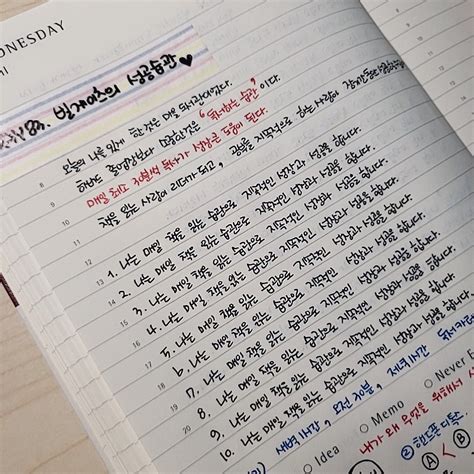 DNESDAY
빌게이츠의 성공습관♥
오늘의 나를 있게 한 것은 마을 도서관이었다.
하버드 졸업장보다 소중한것은 "독서하는 습관" 이다.
매일 최소 30분씩 독서가 성공에 도움이 된다.
책을 읽는 사람이 리더가 되고,
8
9
10
11
12
13 1. 나는 매일 책을 읽는 습관으로 지속적인 성장과 성공을 합니다.
14 2. 나는 매일 책을 읽는 습관으로 지속적인 성장과 성공을 합니다.
15 3. 나는 매일 책을 읽는 습관으로 지속적인 성장과 성공을 합니다.
16 4. 나는 매일 책을 읽는 습관으로 지속적인 성장과 성공을 합니다.
17 5. 나는 매일 책을 읽는 습관으로 지속적인 성장과 성공을 합니다.
18 6. 나는 매일 책을 읽는 습관으로 지속적인 성장과 성공을 합니다.
19 7. 나는 매일 책을 읽는 습관으로 지속적인 성장과 성공을 합니다.
20 8. 나는 매일 책을 읽는 습관으로 지속적인 성장과 성공을 합니다.
9. 나는 매일 책을 읽는 습관으로 지속적인 성장과 성공을 합니다.
10. 나는 매일 책을 읽는 습관으로 지속적인 성장과 성공을 합니다.
새벽 1시간, 오전 30분, 저녁 1시간
Idea
Memo
Never
내가 왜 무엇을 위해서
② 핸드폰 다독
A < B